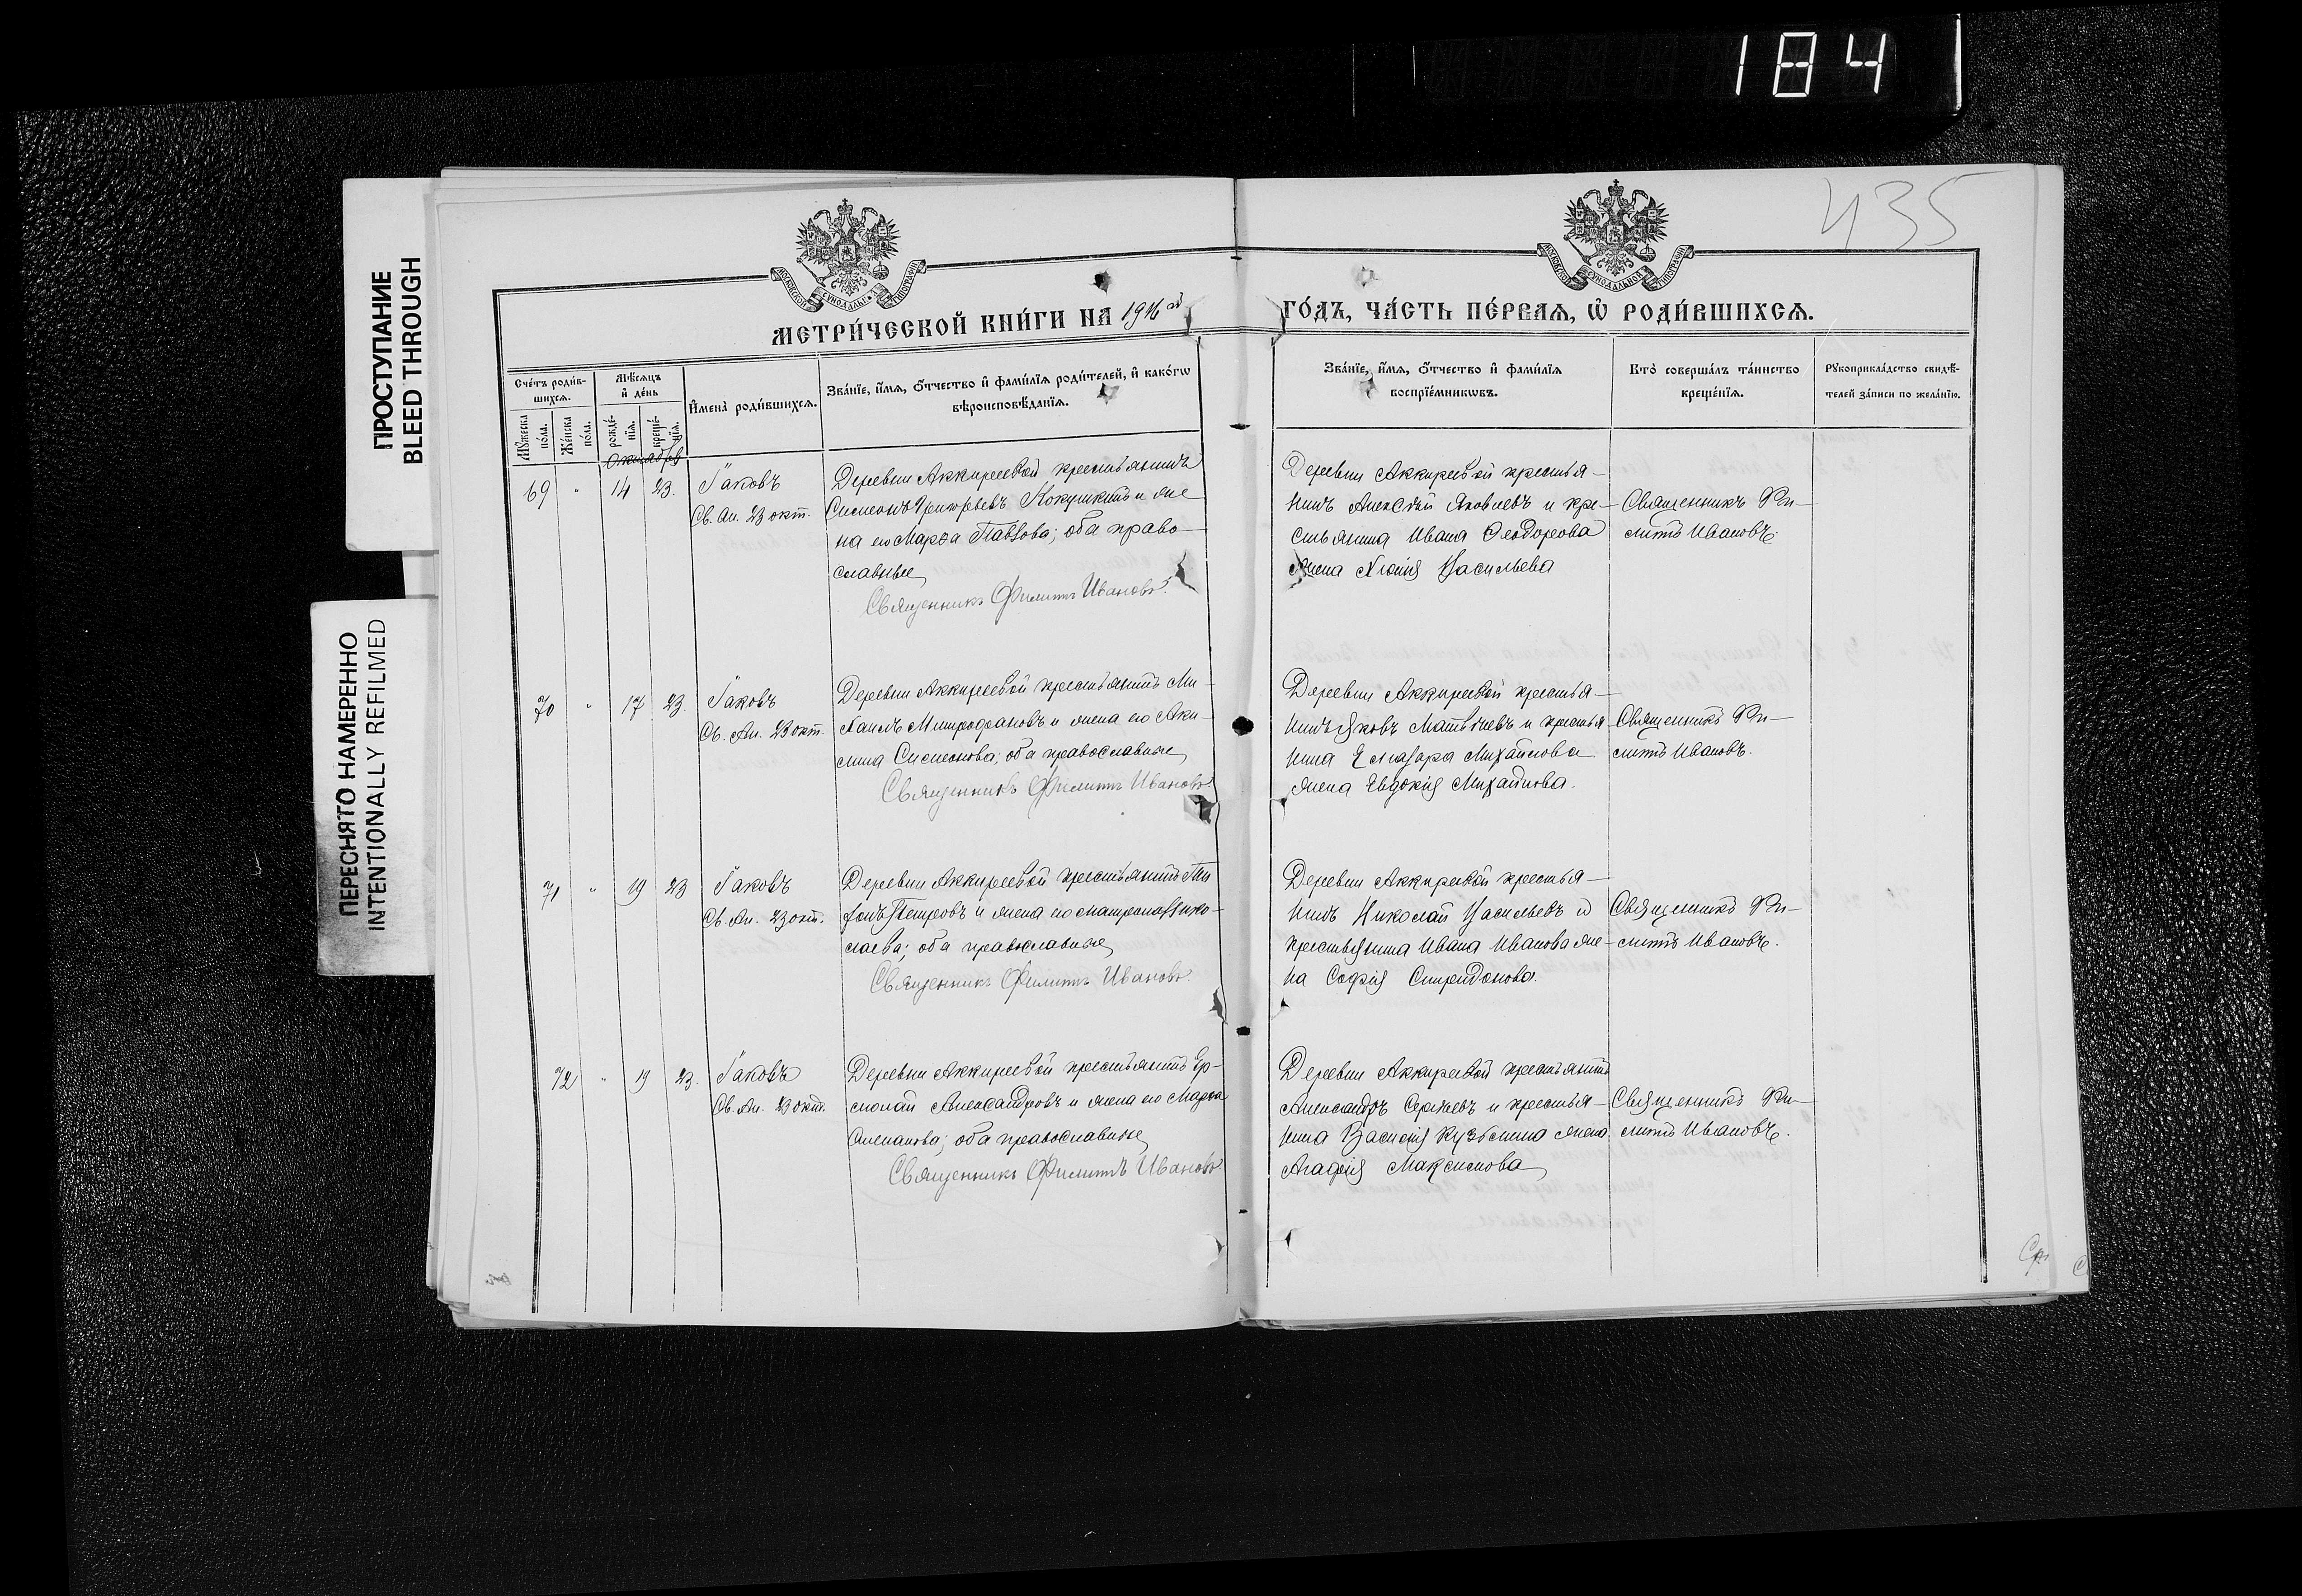 184
ПРОСТУПАНИЕ
BLEED THROUGH
ПЕРЕСНЯТО НАМЕРЕННО
INTENTIONALLY REFILMED
435
МЕТРИ́ЧЕСКОЙ КНИ́ГИ НА 1916 й
ГО́ДЪ, ЧА́СТЬ ПЕ́РВАЯ, Ѽ РОДИ́ВШИХСЯ.
Сче́тъ роди́в-
шихся.
Мѣ́сяцъ
и҆ де́нь
И҆мена̀ роди́вшихся.
Зва́нїе, и҆́мя, ѻ҆́тчество и҆ фами́лїя роди́телей, и҆ како́гѡ
вѣроисповѣ́данїя.
Му́жеска
по́ла.
Же́нска
по́ла.
рожде́-
нїя.
креще́-
нїя.
Зва́нїе, и҆́мя, ѻ҆́тчество и҆ фами́лїя
воспрїе́мникѡвъ.
Кто̀ соверша́лъ та́инство
креще́нїя.
Рукоприкла́дство свидѣ́-
телей за́писи по жела́нїю.
Октябрь
69 " 14 23. Іаковъ
Св. Ап. 23 окт.
Деревни Аккиреевой крестьянинъ
Симеонъ Григорьевъ Кокушкинъ и же
на его Марѳа Павлова; оба право-
славные
Священникъ Филиппъ Ивановъ.
Деревни Аккиреевой крестья-
нинъ Алексѣй Яковлевъ и кре-
стьянина Ивана Ѳеодорова
жена Васильева
Священникъ Фи-
липпъ Ивановъ.
70 " 17 23. Іаковъ
Св. Ап. 23 окт.
Деревни Аккиреевой крестьянинъ Ми-
хаилъ Митрофановъ и жена его Аки-
лина Симеонова; оба православные
Священникъ Филиппъ Ивановъ.
Деревни Аккиреевой крестья-
нинъ Яковъ Матвѣевъ и крестья
нина Елеазара Михайлова
жена Евдокія Михайлова.
Священникъ Фи-
липпъ Ивановъ.
71 " 19 23 Іаковъ
Св. Ап. 23 окт.
Деревни Аккиреевой крестьянинъ Ти
Петровъ и жена его Матрона Нико-
лаева; оба православные
Священникъ Филиппъ Ивановъ.
Деревни Аккиреевой крестья-
нинъ Николай Васильевъ и
крестьянина Ивана Иванова же-
на Софія Спиридонова.
Священникъ Фи-
липпъ Ивановъ.
72 " 19 23. Іаковъ
Св. Ап. 23 окт.
Деревни Аккиреевой крестьянинъ Ер-
молай Александровъ и жена его Марѳа
Степанова; оба православные
Священникъ Филиппъ Ивановъ.
Деревни Аккиреевой крестьянинъ
Александръ Сергѣевъ и крестья-
нина Василія Кузьмина жена
Агафія Максимова
Священникъ Фи-
липпъ Ивановъ.